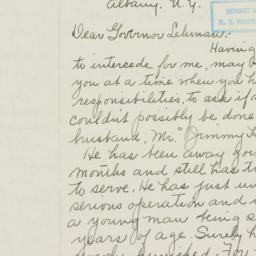 Albany, N.Y.
Dear Governor Lehman:-
Having
to intercede for me, may
you at a time when you
responsibilities, to ask if
couldn't possibly be done
husband, Mr. "Jimmy
He has been away
months and still has
to serve. He has just
serious operation and
a young man being
years of age. Surely
punished. For